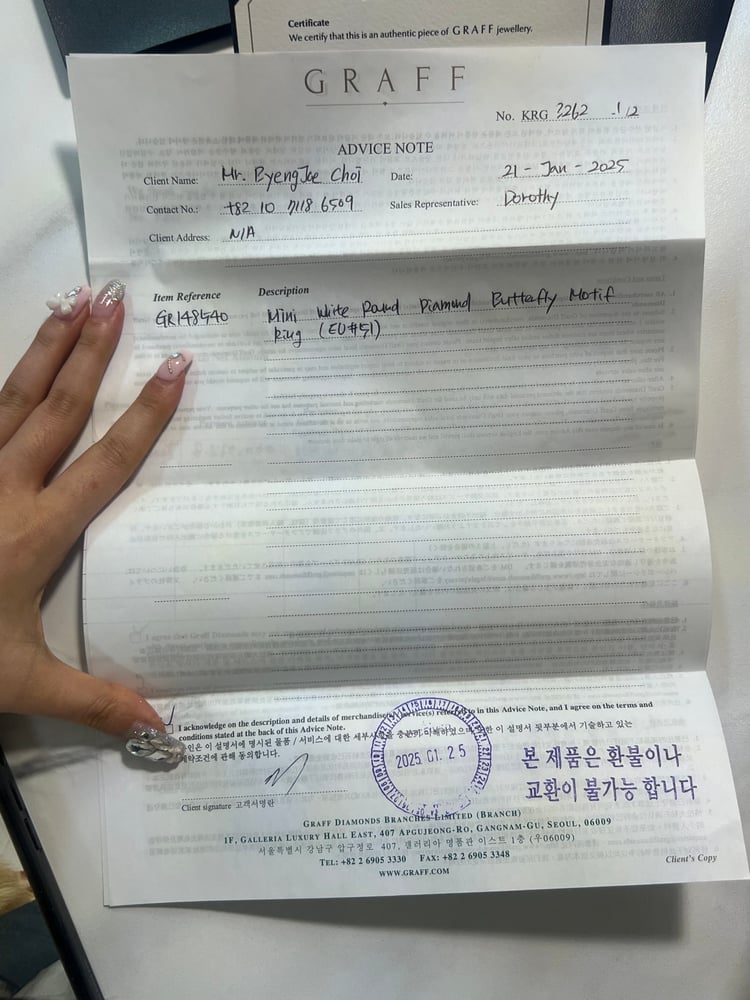 Certificate
We certify that this is an authentic piece of GRAFF jewellery.
GRAFF
No. KRG 3262 1/2
ADVICE NOTE
Client Name: Mr. ByengJae Choi Date: 21 - Jan - 2025
Contact No.: +82 10 7118 6509 Sales Representative: Dorothy
Client Address: N/A
Item Reference Description
GR148540 Mini White Round Diamond Butterfly Motif
Ring (EU#51)
I acknowledge on the description and details of merchandise(s)/service(s) referred to in this Advice Note, and I agree on the terms and
conditions stated at the back of this Advice Note.
인은 이 설명서에 명시된 물품 / 서비스에 대한 세부사항을 충분히 이해하였으며 또한 이 설명서 뒷부분에서 기술하고 있는
계약조건에 관해 동의합니다.
2025. 01. 25
본 제품은 환불이나
교환이 불가능 합니다
Client signature 고객서명란
GRAFF DIAMONDS BRANCHES LIMITED (BRANCH)
1F, GALLERIA LUXURY HALL EAST, 407 APGUJEONG-RO, GANGNAM-GU, SEOUL, 06009
서울특별시 강남구 압구정로 407, 갤러리아 명품관 이스트 1층 (우06009)
TEL: +82 2 6905 3330 FAX: +82 2 6905 3348
WWW.GRAFF.COM
Client's Copy